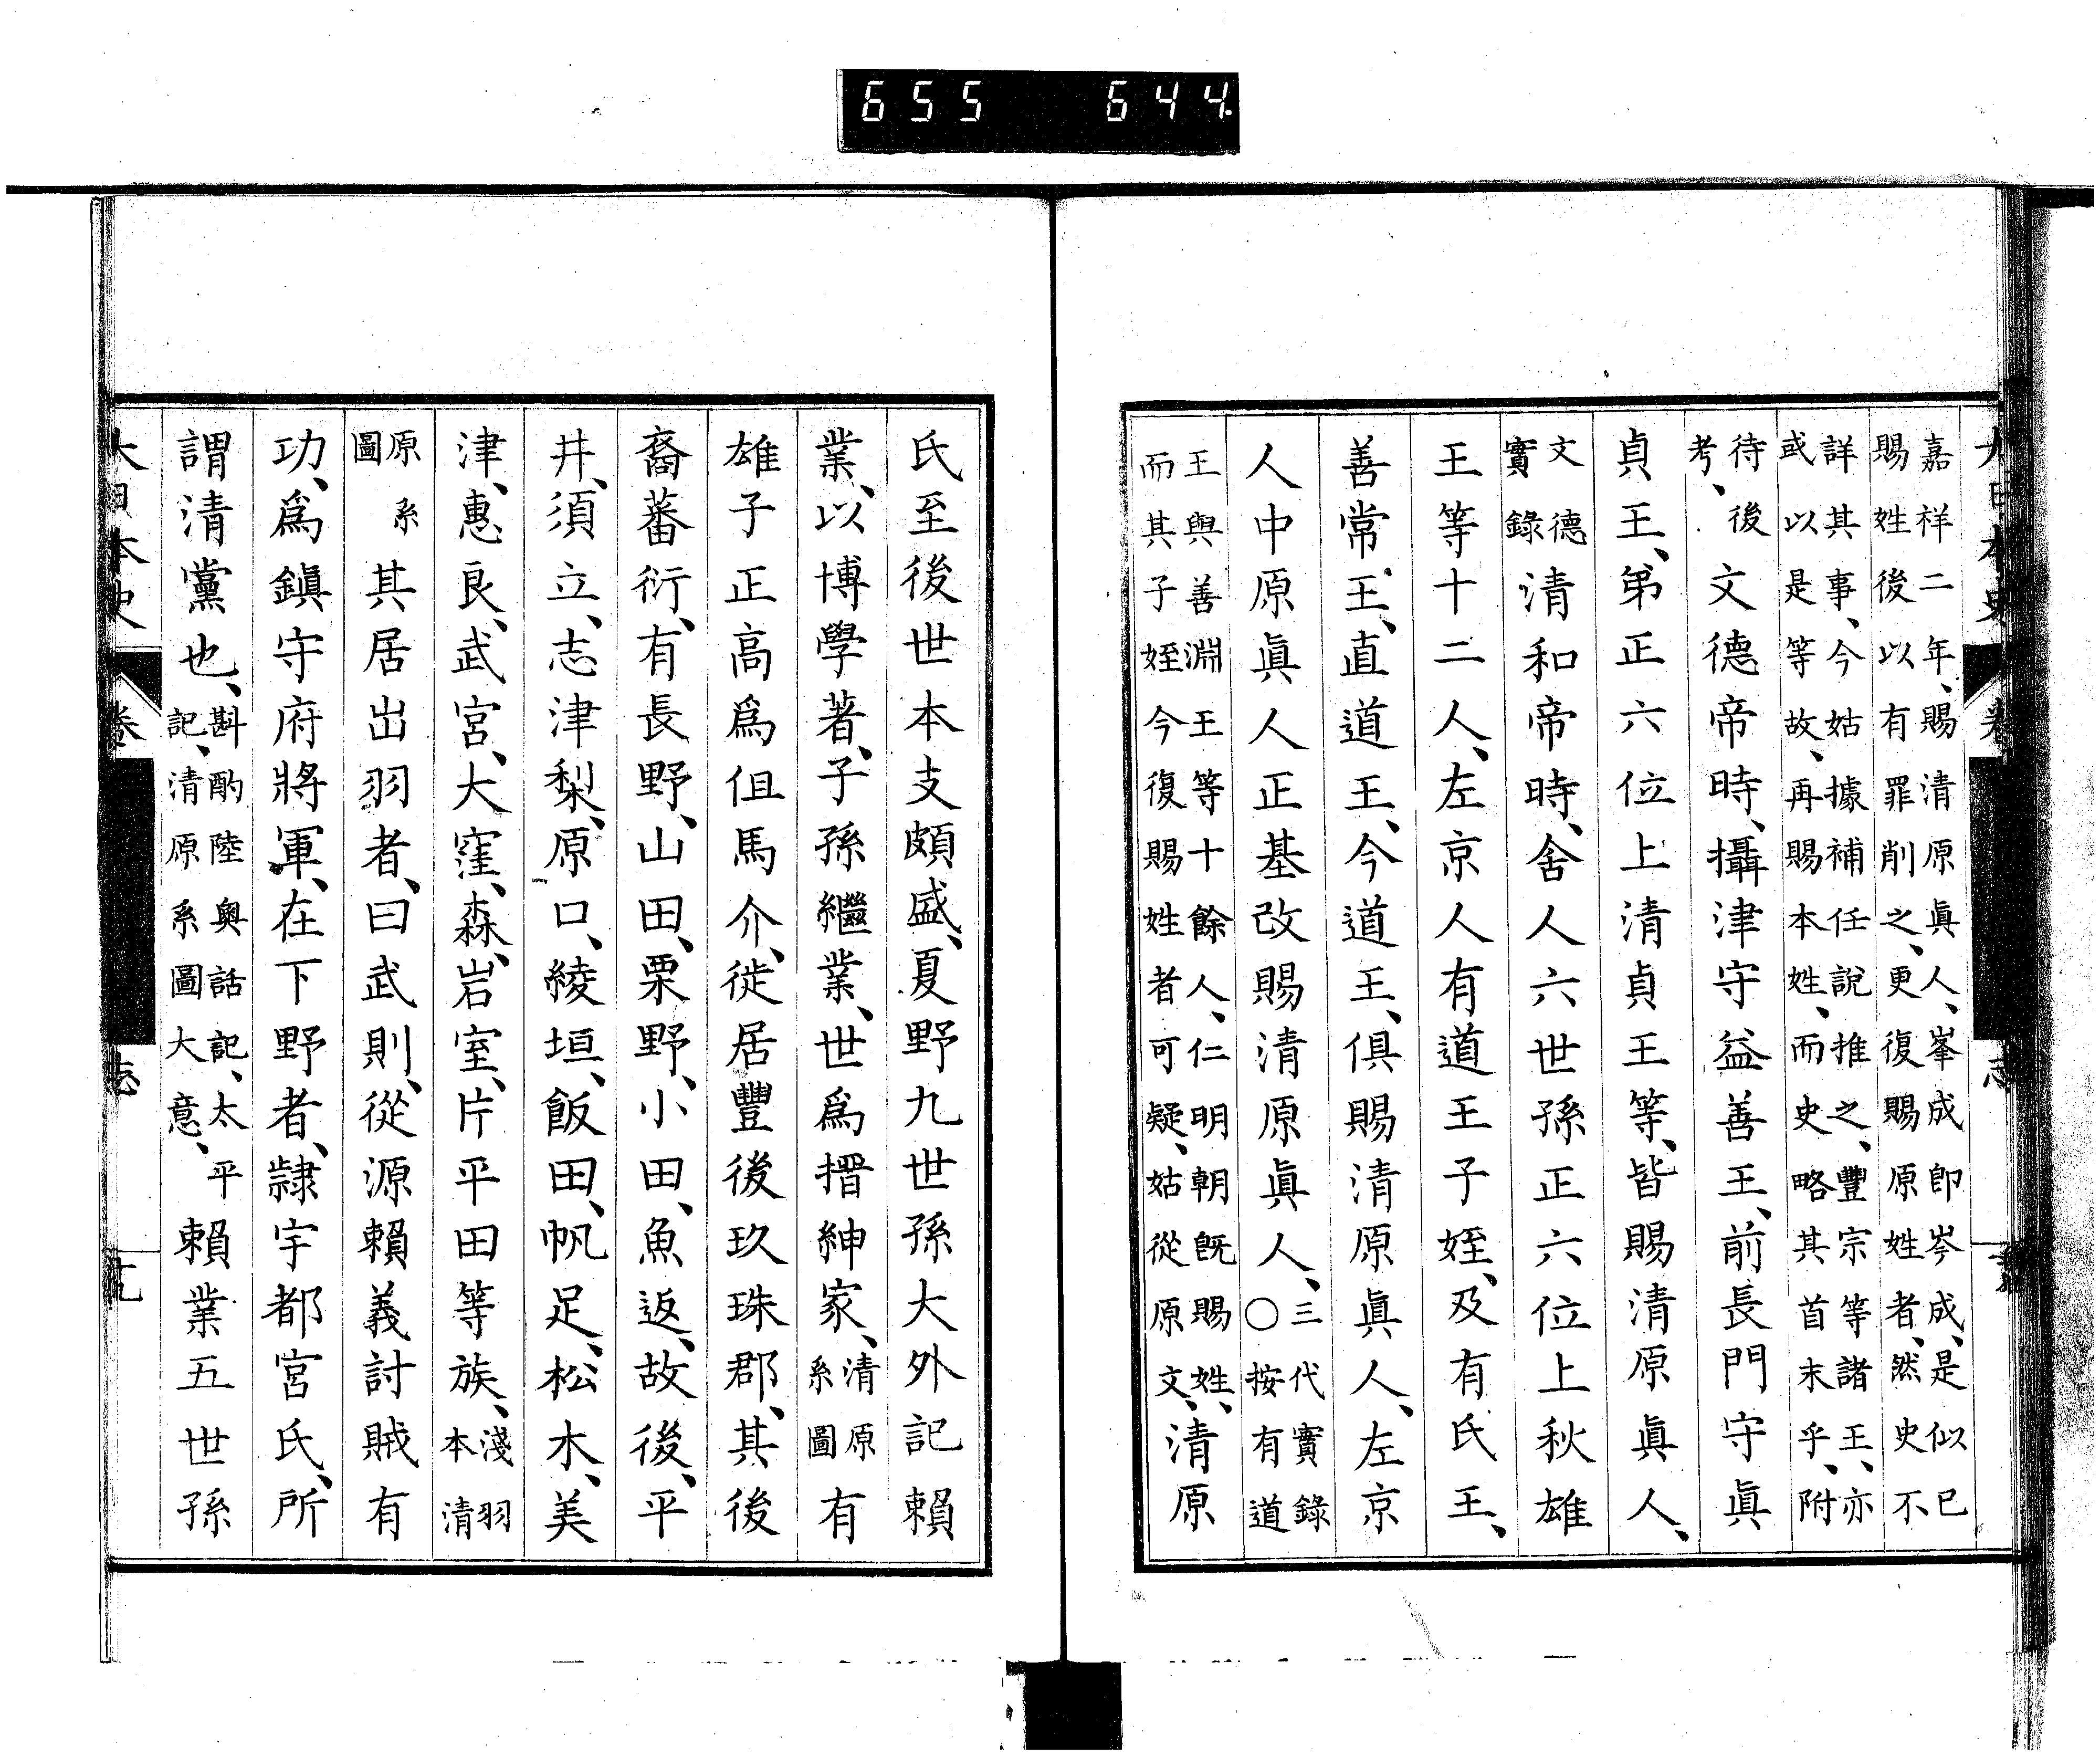 655 644
大日本史 卷 志
嘉祥二年、賜清原眞人、峯成卽岑成、是似已
賜姓後以有罪削之、更復賜原姓者、然史不
詳其事、今姑據補任說推之、豐宗等諸王、亦
或以是等故、再賜本姓、而史略其首末乎、附
待後
考、
文德帝時、攝津守益善王、前長門守眞
貞王、弟正六位上清貞王等、皆賜清原眞人、
文德
實錄
清和帝時、舍人六世孫正六位上秋雄
王等十二人、左京人有道王子姪、及有氏王、
善常王、直道王、今道王、俱賜清原眞人、左京
人中原眞人正基改賜清原眞人、
三代實錄
○按有道
王與善淵王等十餘人、仁明朝既賜姓、
而其子姪今復賜姓者可疑、姑從原文、
清原
氏至後世本支頗盛、夏野九世孫大外記賴
業、以博學著、子孫繼業、世爲搢紳家、
清原
系圖
有
雄子正高爲但馬介、徙居豐後玖珠郡、其後
裔蕃衍、有長野、山田、栗野、小田、魚返、故後、平
井、須立、志津梨、原口、綾垣、飯田、帆足、松木、美
津、惠良、武宮、大窪、森、岩室、片平田等族、
淺羽
本清
原系
圖
其居出羽者、曰武則、從源賴義討賊有
功、爲鎭守府將軍、在下野者、隷宇都宮氏、所
謂清黨也、
斟酌陸奧話記、太平
記、清原系圖大意、
賴業五世孫
大日本史 卷 志 十九